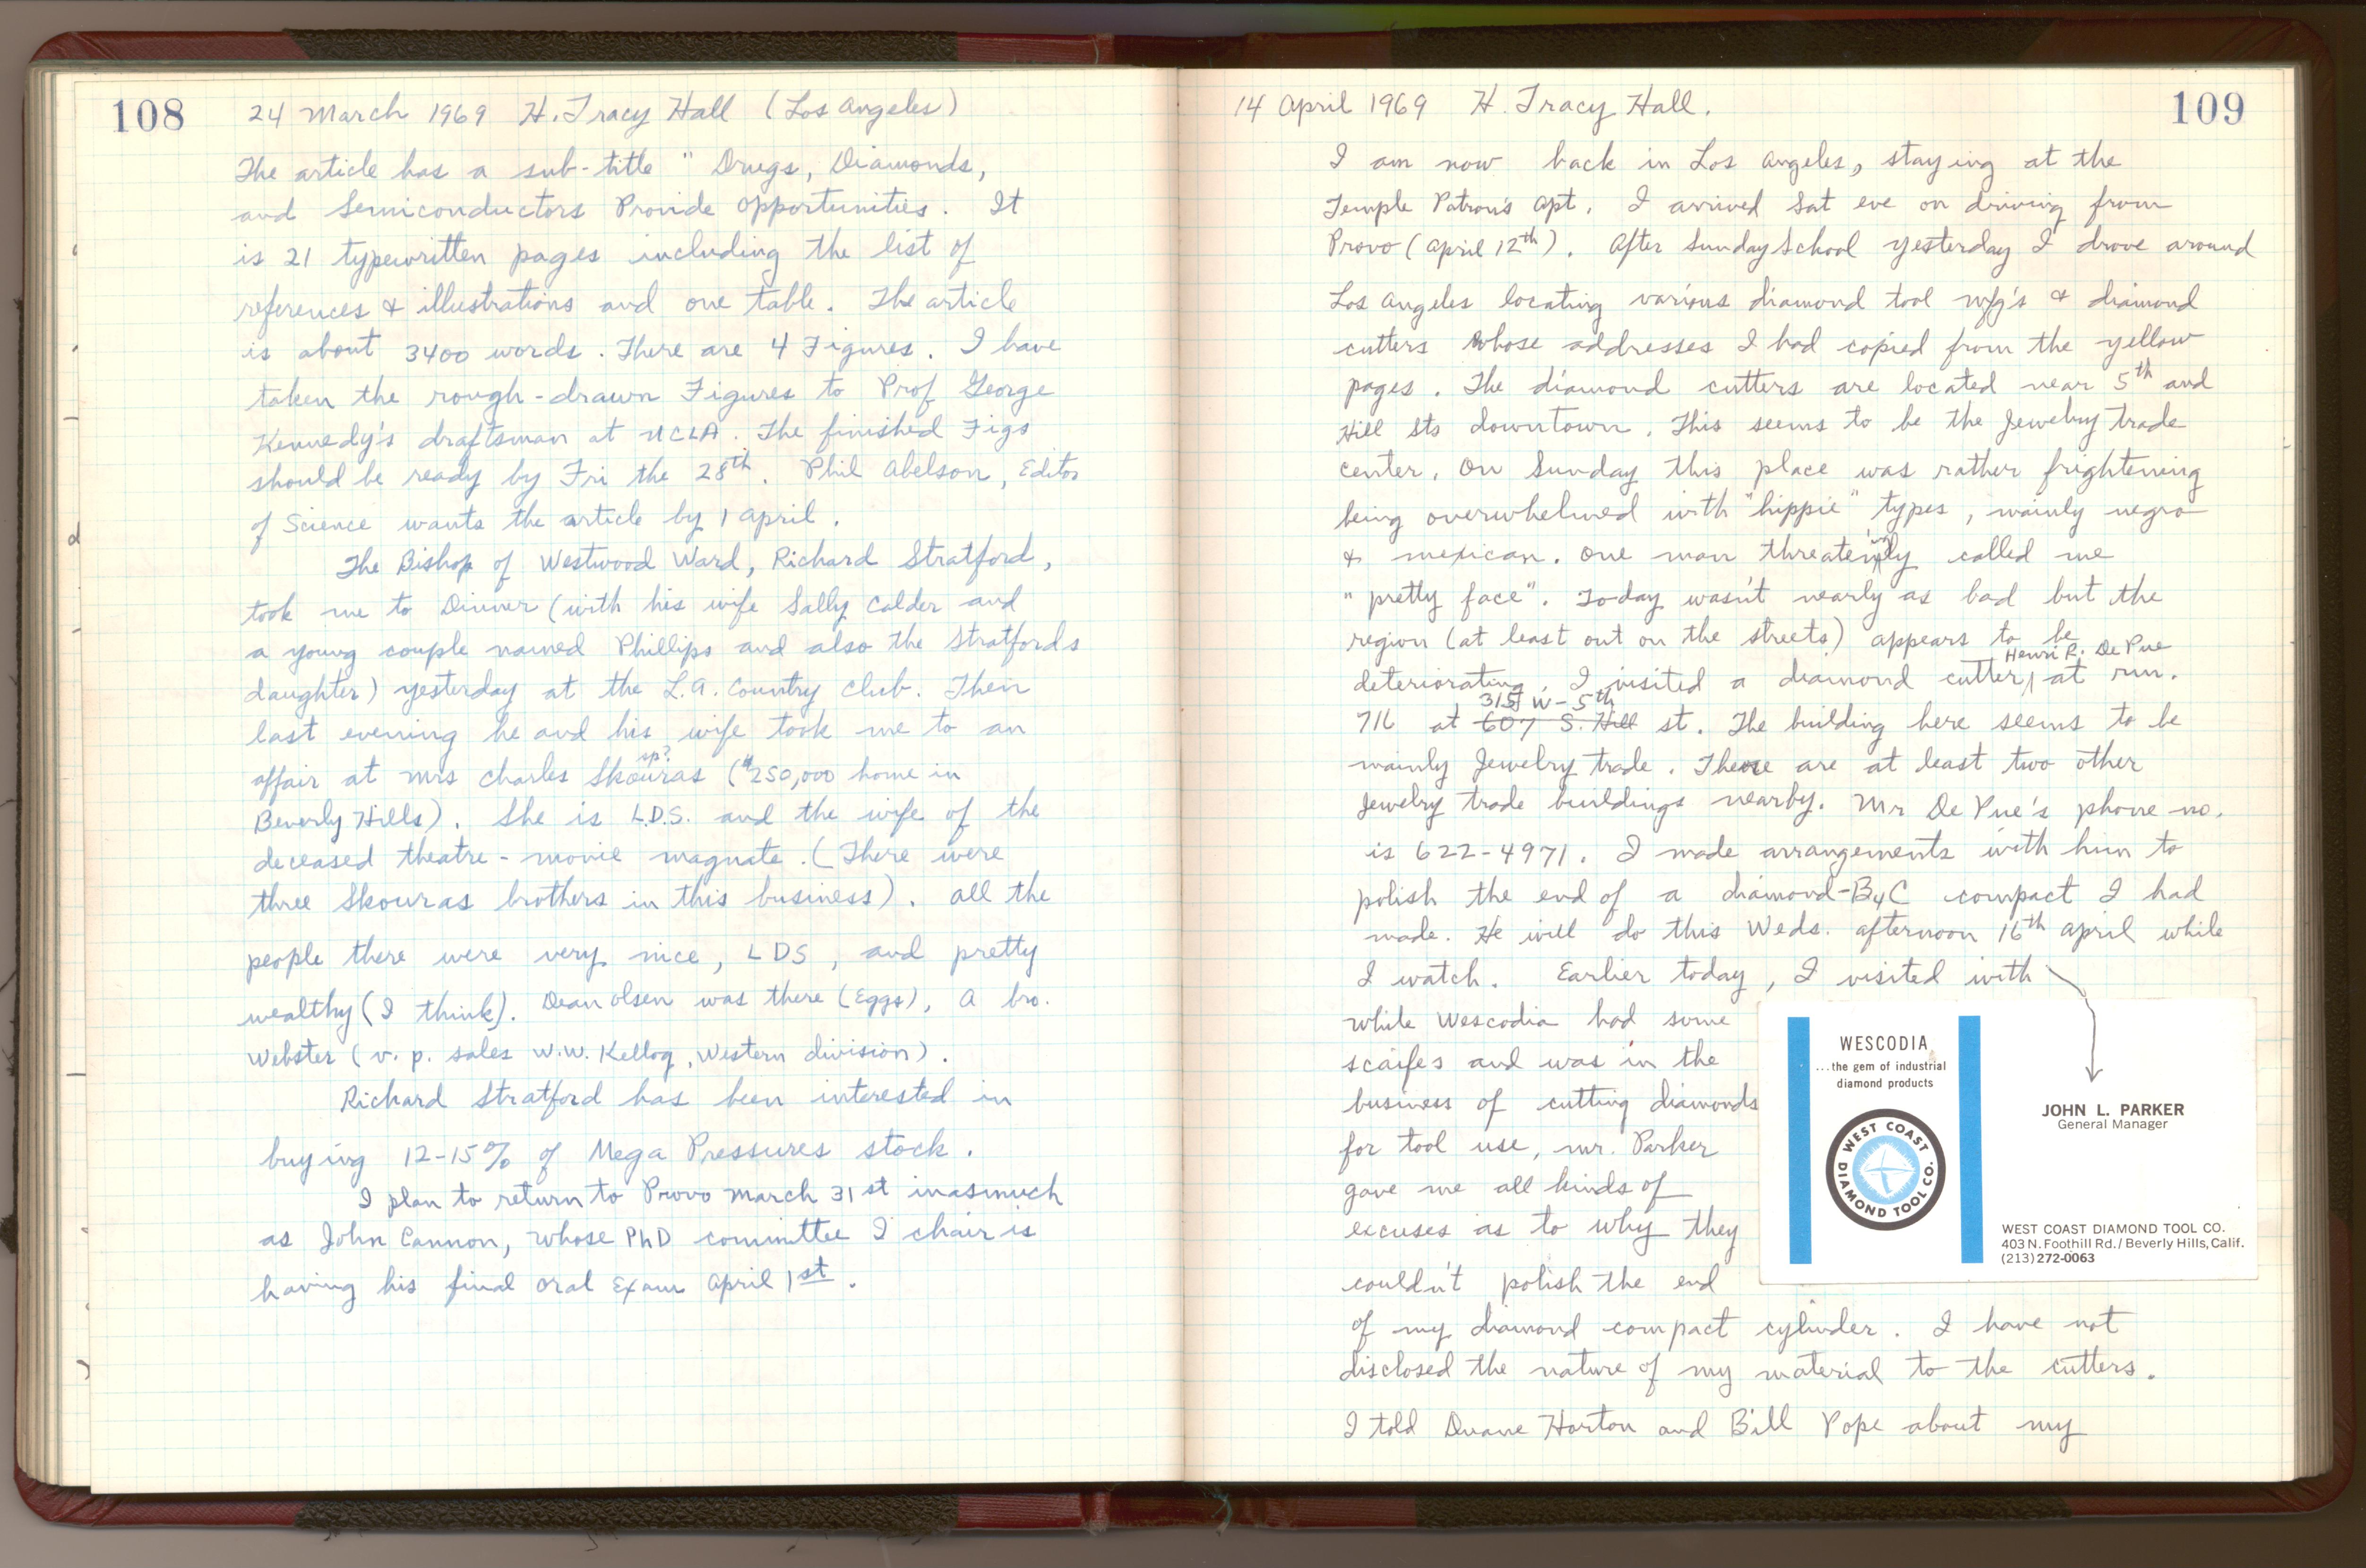 108
24 March 1969 H. Tracy Hall (Los Angeles)
The article has a sub-title " Drugs, Diamonds,
and Semiconductors Provide opportunities. It
is 21 typewritten pages including the list of
references & illustrations and one table. The article
is about 3400 words. There are 4 Figures. I have
taken the rough-drawn Figures to Prof George
Kennedy's draftsman at UCLA. The finished Figs
should be ready by Fri the 28th. Phil Abelson, Editor
of Science wants the article by 1 April.
The Bishop of Westwood Ward, Richard Stratford,
took me to Dinner (with his wife Sally Calder and
a young couple named Phillips and also the Stratfords
daughter) yesterday at the L.A. Country Club. Then
last evening he and his wife took me to an
sp?
affair at Mrs Charles Skouras ($250,000 home in
Beverly Hills). She is L.D.S. and the wife of the
deceased theatre-movie magnate. (There were
three Skouras brothers in this business). All the
people there were very nice, LDS, and pretty
wealthy (I think). Dean Olsen was there (Eggs), A bro.
Webster (v. p. sales W.W. Kellog, Western division).
Richard Stratford has been interested in
buying 12-15% of Mega Pressures stock.
I plan to return to Provo March 31st inasmuch
as John Cannon, whose PhD committee I chair is
having his final oral Exam April 1st.
109
14 April 1969 H. Tracy Hall.
I am now back in Los Angeles, staying at the
Temple Patron's Apt. I arrived Sat eve on driving from
Provo (April 12th). After Sunday School yesterday I drove around
Los Angeles locating various diamond tool mfg's & diamond
cutters whose addresses I had copied from the yellow
pages. The diamond cutters are located near 5th and
Hill Sts downtown. This seems to be the Jewelry trade
center. On Sunday this place was rather frightening
being overwhelmed with "hippie" types, mainly negro
& mexican. One man threateningly called me
"pretty face". Today wasn't nearly as bad but the
region (at least out on the streets) appears to be
Henri R. De Pue
deteriorating. I visited a diamond cutter, at rm.
315 W-5th
716 at 607 S. Hill st. The building here seems to be
mainly Jewelry trade. There are at least two other
Jewelry trade buildings nearby. Mr De Pue's phone no.
is 622-4971. I made arrangements with him to
polish the end of a diamond-B4C compact I had
made. He will do this Weds. afternoon 16th April while
I watch. Earlier today, I visited with
while Wescodia had some
scaifes and was in the
business of cutting diamonds
for tool use, Mr. Parker
gave me all kinds of
excuses as to why they
couldn't polish the end
of my diamond compact cylinder. I have not
disclosed the nature of my material to the cutters.
I told Duane Horton and Bill Pope about my
WESCODIA
...the gem of industrial
diamond products
WEST COAST
DIAMOND TOOL CO.
JOHN L. PARKER
General Manager
WEST COAST DIAMOND TOOL CO.
403 N. Foothill Rd. / Beverly Hills, Calif.
(213) 272-0063